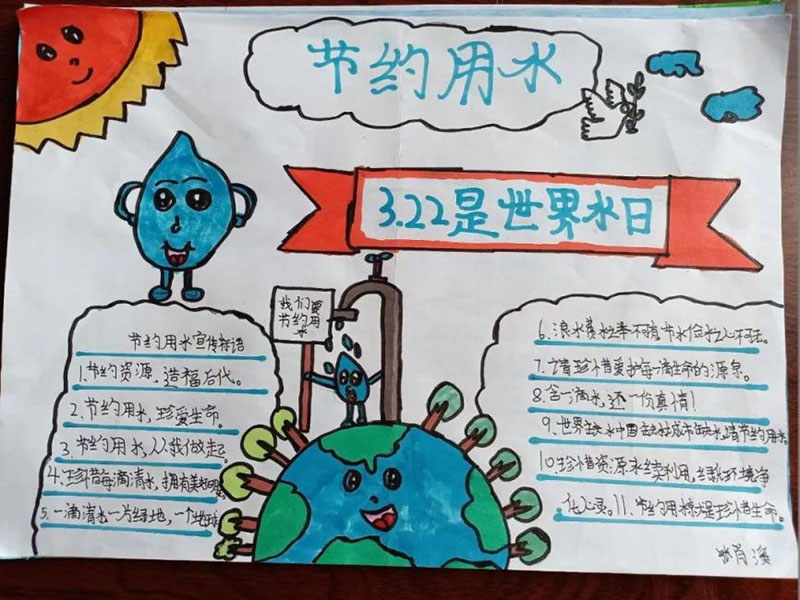 节约用水
3.22是世界水日
我们要
节约用
水
节约用水宣传标语
1.节约资源、造福后代。
2.节约用水,珍爱生命。
3.节约用水,从我做起
4.珍惜每滴清水,拥有美好明
5.一滴清水一片绿地,一个地球
6.浪水费水率不可省节水俭水心不可无。
7.请珍惜爱护每一滴生命的源泉。
8.含一滴水,还一份真情!
9.世界缺水中国缺水城市缺水请节约用水
10.珍惜资源永续利用,绿化环境净
化心灵。11.节约用水就是珍惜生命。